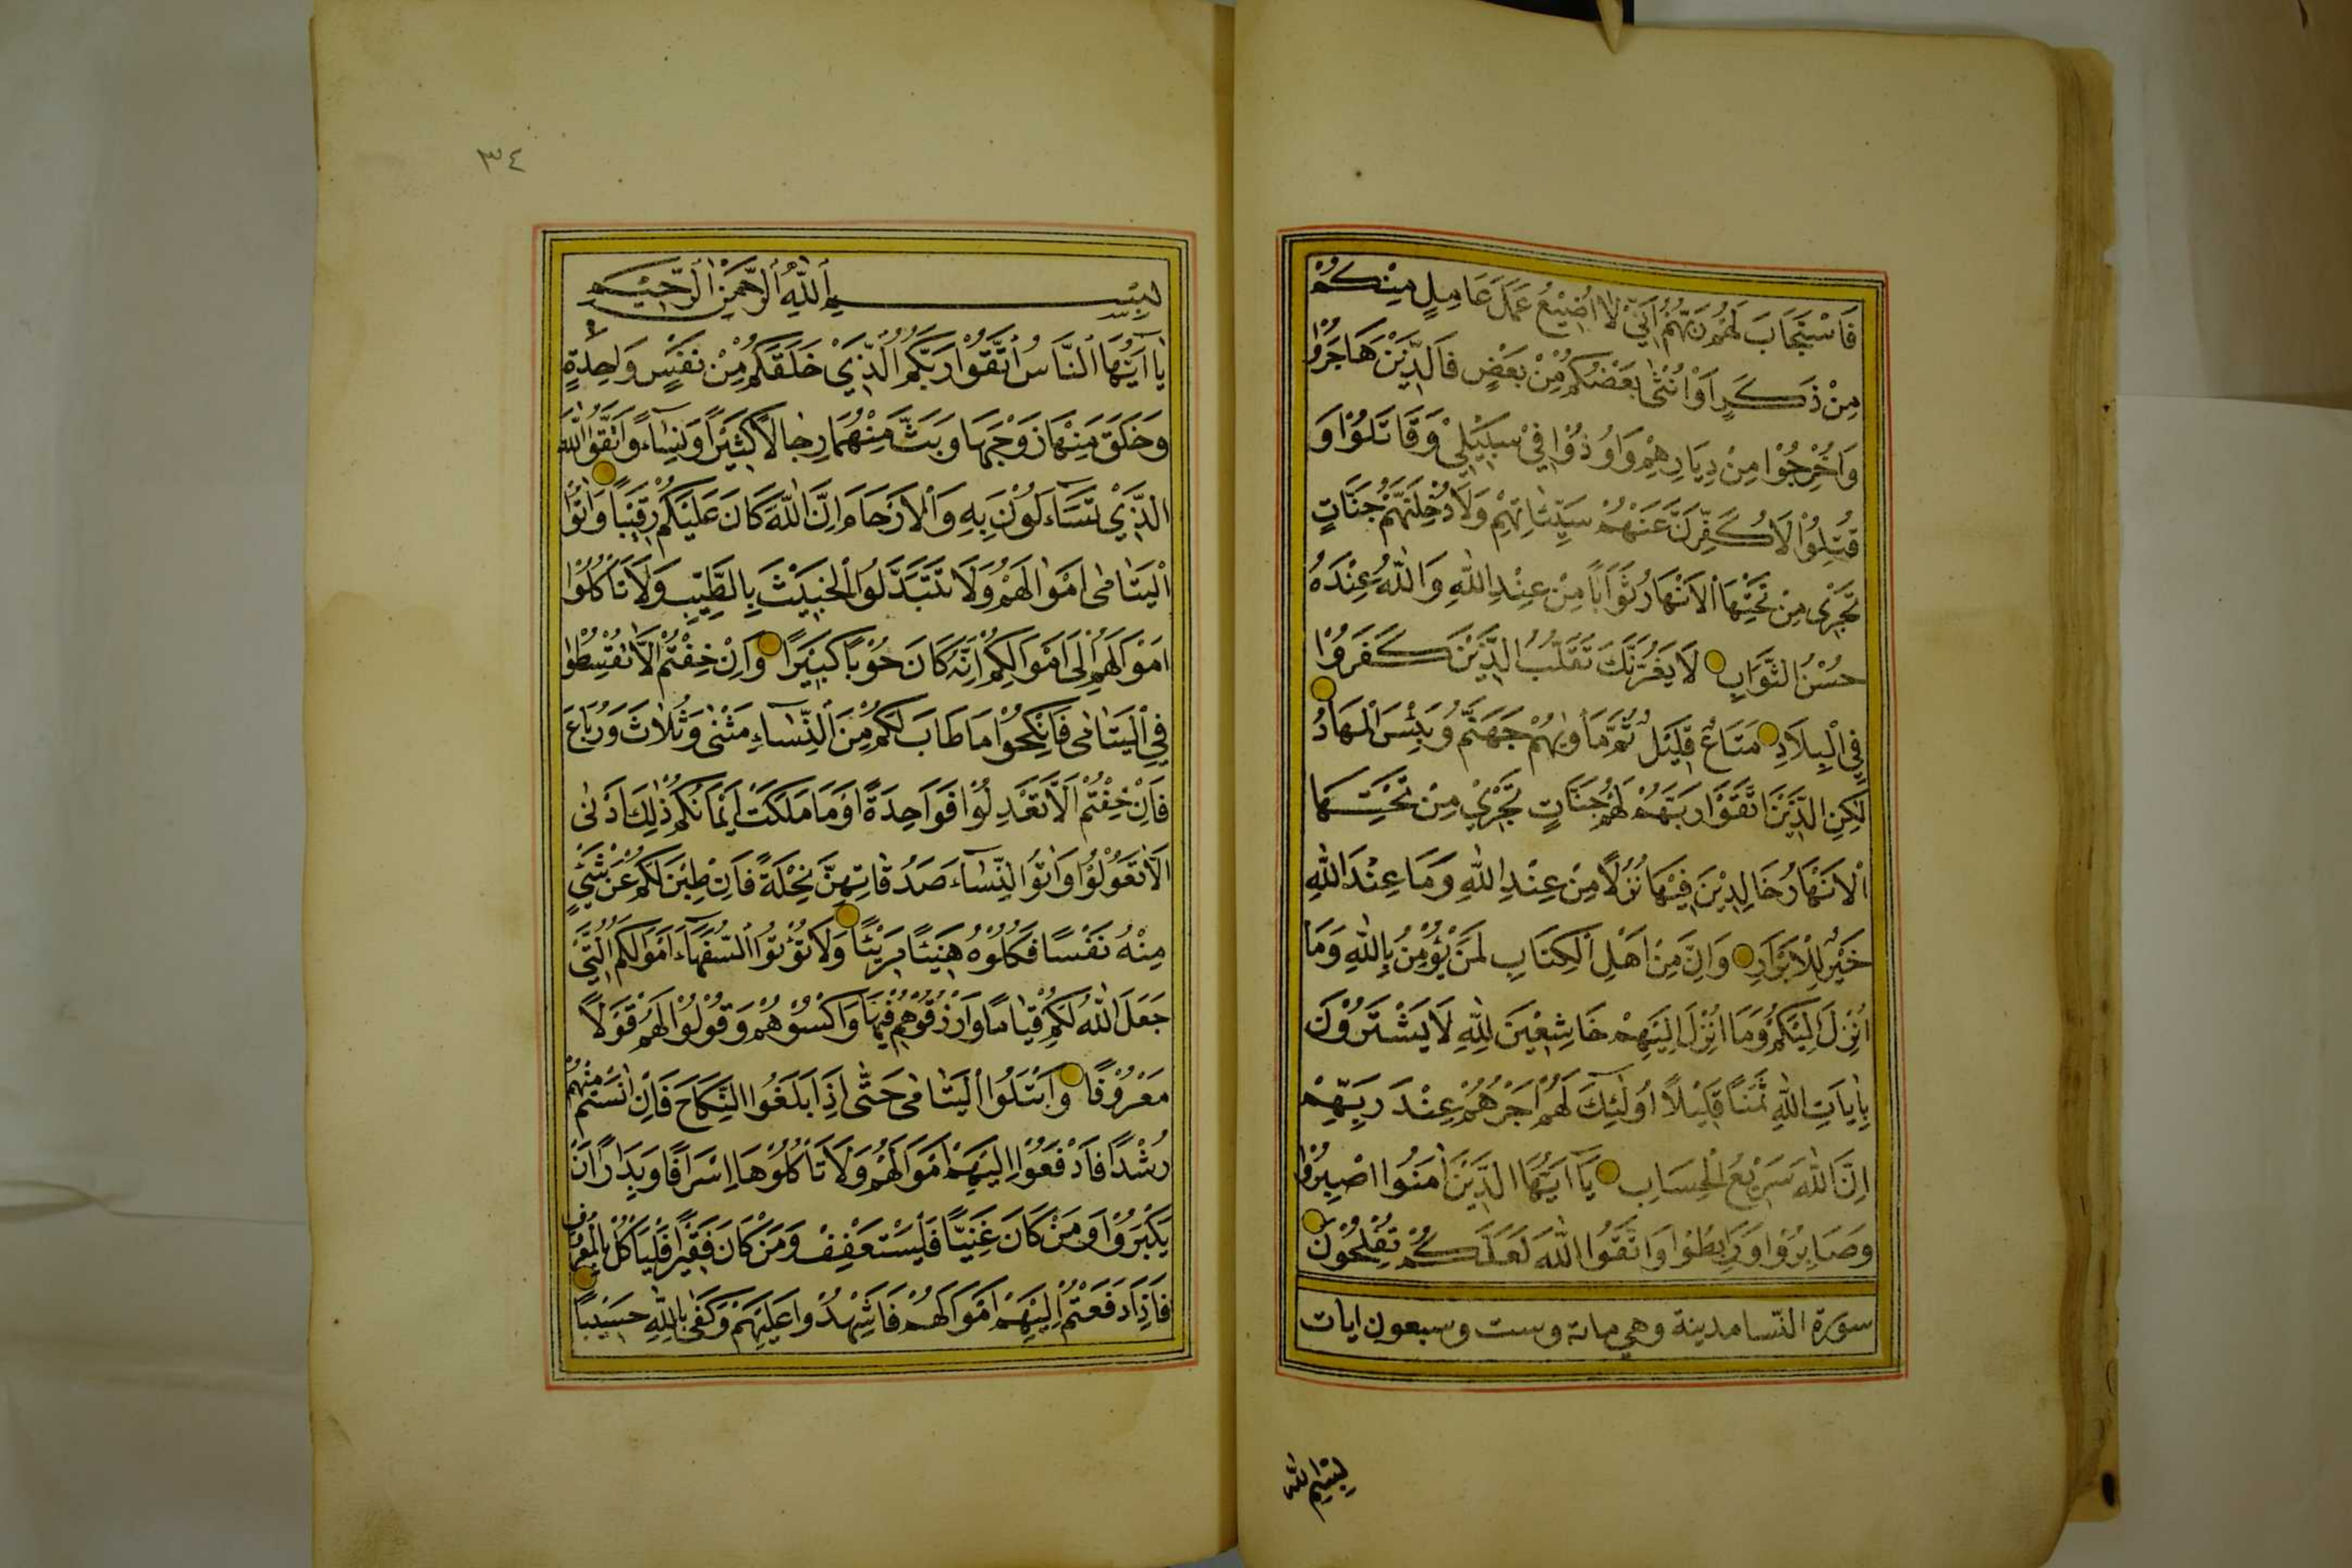 فَاسْتَجَابَ لَهُمْ رَبُّهُمْ اَنِّي لَا اُضِيْعُ عَمَلَ عَامِلٍ مِنْكُمْ
مِنْ ذَكَرٍ اَوْ اُنْثٰى بَعْضُكُمْ مِنْ بَعْضٍ فَالَّذِيْنَ هَاجَرُوْا
وَاُخْرِجُوْا مِنْ دِيَارِهِمْ وَاُوْذُوْا فِيْ سَبِيْلِيْ وَقَاتَلُوْا وَ
قُتِلُوْا لَاُكَفِّرَنَّ عَنْهُمْ سَيِّئَاتِهِمْ وَلَاُدْخِلَنَّهُمْ جَنَّاتٍ
تَجْرِيْ مِنْ تَحْتِهَا الْاَنْهَارُ ثَوَابًا مِنْ عِنْدِ اللّٰهِ وَاللّٰهُ عِنْدَهُ
حُسْنُ الثَّوَابِ لَا يَغُرَّنَّكَ تَقَلُّبُ الَّذِيْنَ كَفَرُوْا
فِي الْبِلَادِ مَتَاعٌ قَلِيْلٌ ثُمَّ مَأْوٰيهُمْ جَهَنَّمُ وَبِئْسَ الْمِهَادُ
لٰكِنِ الَّذِيْنَ اتَّقَوْا رَبَّهُمْ لَهُمْ جَنَّاتٍ تَجْرِيْ مِنْ تَحْتِهَا
الْاَنْهَارُ خَالِدِيْنَ فِيْهَا نُزُلًا مِنْ عِنْدِ اللّٰهِ وَمَا عِنْدَ اللّٰهِ
خَيْرٌ لِلْاَبْرَارِ وَاِنَّ مِنْ اَهْلِ الْكِتَابِ لَمَنْ يُؤْمِنُ بِاللّٰهِ وَمَا
اُنْزِلَ اِلَيْكُمْ وَمَا اُنْزِلَ اِلَيْهِمْ خَاشِعِيْنَ لِلّٰهِ لَا يَشْتَرُوْنَ
بِاٰيَاتِ اللّٰهِ ثَمَنًا قَلِيْلًا اُولٰئِكَ لَهُمْ اَجْرُهُمْ عِنْدَ رَبِّهِمْ
اِنَّ اللّٰهَ سَرِيْعُ الْحِسَابِ يَا اَيُّهَا الَّذِيْنَ اٰمَنُوا اصْبِرُوْا
وَصَابِرُوْا وَرَابِطُوْا وَاتَّقُوا اللّٰهَ لَعَلَّكُمْ تُفْلِحُوْنَ
سورة النسا مدينة وهي مائه وست وسبعون ايات
بِسْمِ اللّٰهِ
٣٤
بِسْمِ اللّٰهِ الرَّحْمٰنِ الرَّحِيْمِ
يَا اَيُّهَا النَّاسُ اتَّقُوْا رَبَّكُمُ الَّذِيْ خَلَقَكُمْ مِنْ نَفْسٍ وَاحِدَةٍ
وَخَلَقَ مِنْهَا زَوْجَهَا وَبَثَّ مِنْهُمَا رِجَالًا كَثِيْرًا وَنِسَاءً وَاتَّقُوا اللّٰهَ
الَّذِيْ تَسَاءَلُوْنَ بِهِ وَالْاَرْحَامَ اِنَّ اللّٰهَ كَانَ عَلَيْكُمْ رَقِيْبًا وَاٰتُوا
الْيَتَامٰى اَمْوَالَهُمْ وَلَا تَتَبَدَّلُوا الْخَبِيْثَ بِالطَّيِّبِ وَلَا تَأْكُلُوْا
اَمْوَالَهُمْ اِلٰى اَمْوَالِكُمْ اِنَّهُ كَانَ حُوْبًا كَبِيْرًا وَاِنْ خِفْتُمْ اَلَّا تُقْسِطُوْا
فِي الْيَتَامٰى فَانْكِحُوْا مَا طَابَ لَكُمْ مِنَ النِّسَاءِ مَثْنٰى وَثُلَاثَ وَرُبَاعَ
فَاِنْ خِفْتُمْ اَلَّا تَعْدِلُوْا فَوَاحِدَةً اَوْ مَا مَلَكَتْ اَيْمَانُكُمْ ذٰلِكَ اَدْنٰى
اَلَّا تَعُوْلُوْا وَاٰتُوا النِّسَاءَ صَدُقَاتِهِنَّ نِحْلَةً فَاِنْ طِبْنَ لَكُمْ عَنْ شَيْءٍ
مِنْهُ نَفْسًا فَكُلُوْهُ هَنِيْئًا مَرِيْئًا وَلَا تُؤْتُوا السُّفَهَاءَ اَمْوَالَكُمُ الَّتِيْ
جَعَلَ اللّٰهُ لَكُمْ قِيَامًا وَارْزُقُوْهُمْ فِيْهَا وَاكْسُوْهُمْ وَقُوْلُوْا لَهُمْ قَوْلًا
مَعْرُوْفًا وَابْتَلُوا الْيَتَامٰى حَتّٰى اِذَا بَلَغُوا النِّكَاحَ فَاِنْ اٰنَسْتُمْ مِنْهُمْ
رُشْدًا فَادْفَعُوْا اِلَيْهِمْ اَمْوَالَهُمْ وَلَا تَأْكُلُوْهَا اِسْرَافًا وَبِدَارًا اَنْ
يَكْبَرُوْا وَمَنْ كَانَ غَنِيًّا فَلْيَسْتَعْفِفْ وَمَنْ كَانَ فَقِيْرًا فَلْيَأْكُلْ بِالْمَعْرُوْفِ
فَاِذَا دَفَعْتُمْ اِلَيْهِمْ اَمْوَالَهُمْ فَاَشْهِدُوْا عَلَيْهِمْ وَكَفٰى بِاللّٰهِ حَسِيْبًا